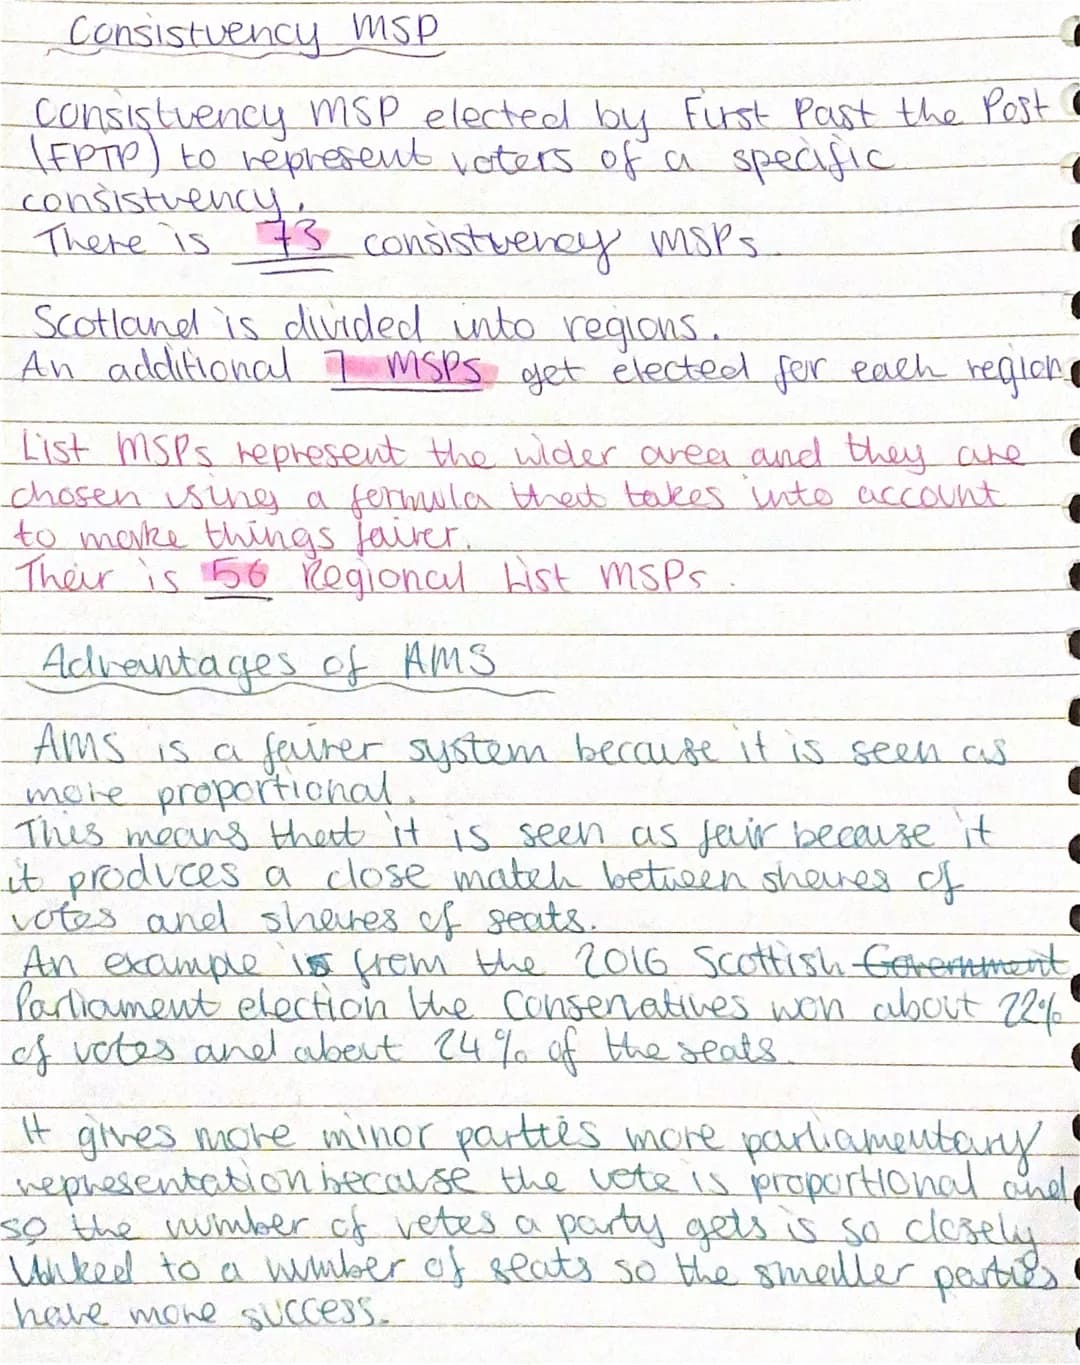 Consistuency MSP
Consistuency MSP elected by First Past the Post
(FPTP) to represent voters of a specific
consistuency.
There is 73 consistuency MSPs
Scotland is divided into regions.
An additional 7 MSPs get elected for each region
List MSPs represent the wider area and they are
chosen using a formula that takes into account
to make things fairer.
Their is 56 Regional List MSPs.
Advantages of AMS
AMS is a fairer system because it is seen as
more proportional.
This means that it is seen as fair because it
it produces a close match between shares of
votes and shares of seats.
An example is from the 2016 Scottish Government
Parliament election the Conservatives won about 22%
of votes and about 24% of the seats.
It gives more minor parties more parliamentary
representation because the vote is proportional and
so the number of votes a party gets is so closely
linked to a number of seats so the smaller parties
have more success.